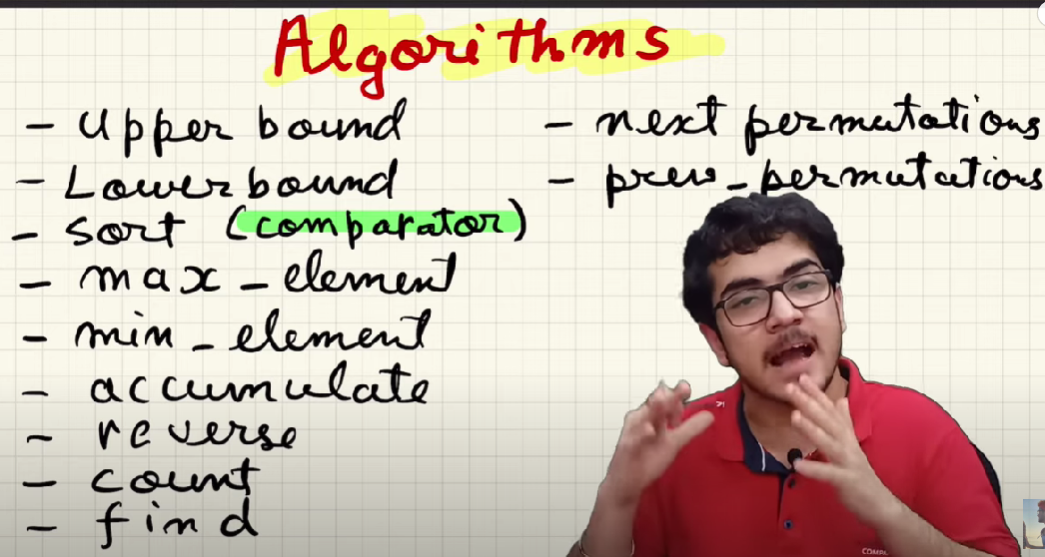 Algorithms
- upper bound
- Lower bound
- sort (comparator)
- max - element
- min - element
- accumulate
- reverse
- count
- find
- next permutations
- prev - permutations
COMP